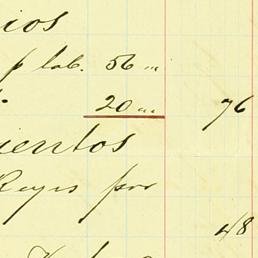 ios
p lab. 56 „
20 „ 76
ientos
Reyes por
48